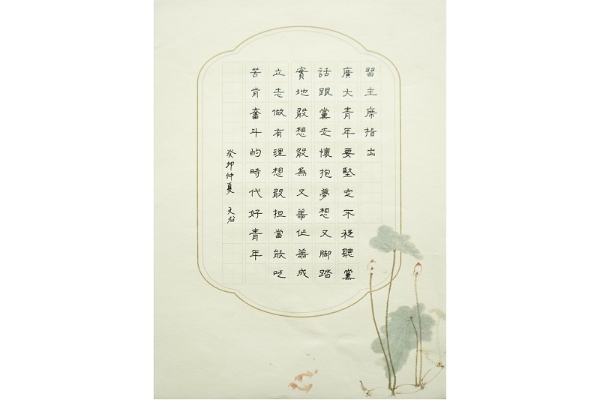 習主席指出
廣大青年要堅定不移聽黨
話跟黨走懷抱夢想又腳踏
實地敢想敢為又善作善成
立志做有理想敢担當能吃
苦肯奮斗的時代好青年
癸卯仲夏 文